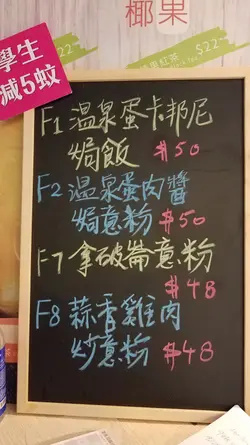 椰果
$22~
$22~
學生
減5蚊
F1 溫泉蛋卡邦尼
焗飯 $50
F2 溫泉蛋肉醬
焗意粉 $50
F7 拿破崙意粉
$48
F8 蒜香雞肉
炒意粉 $48